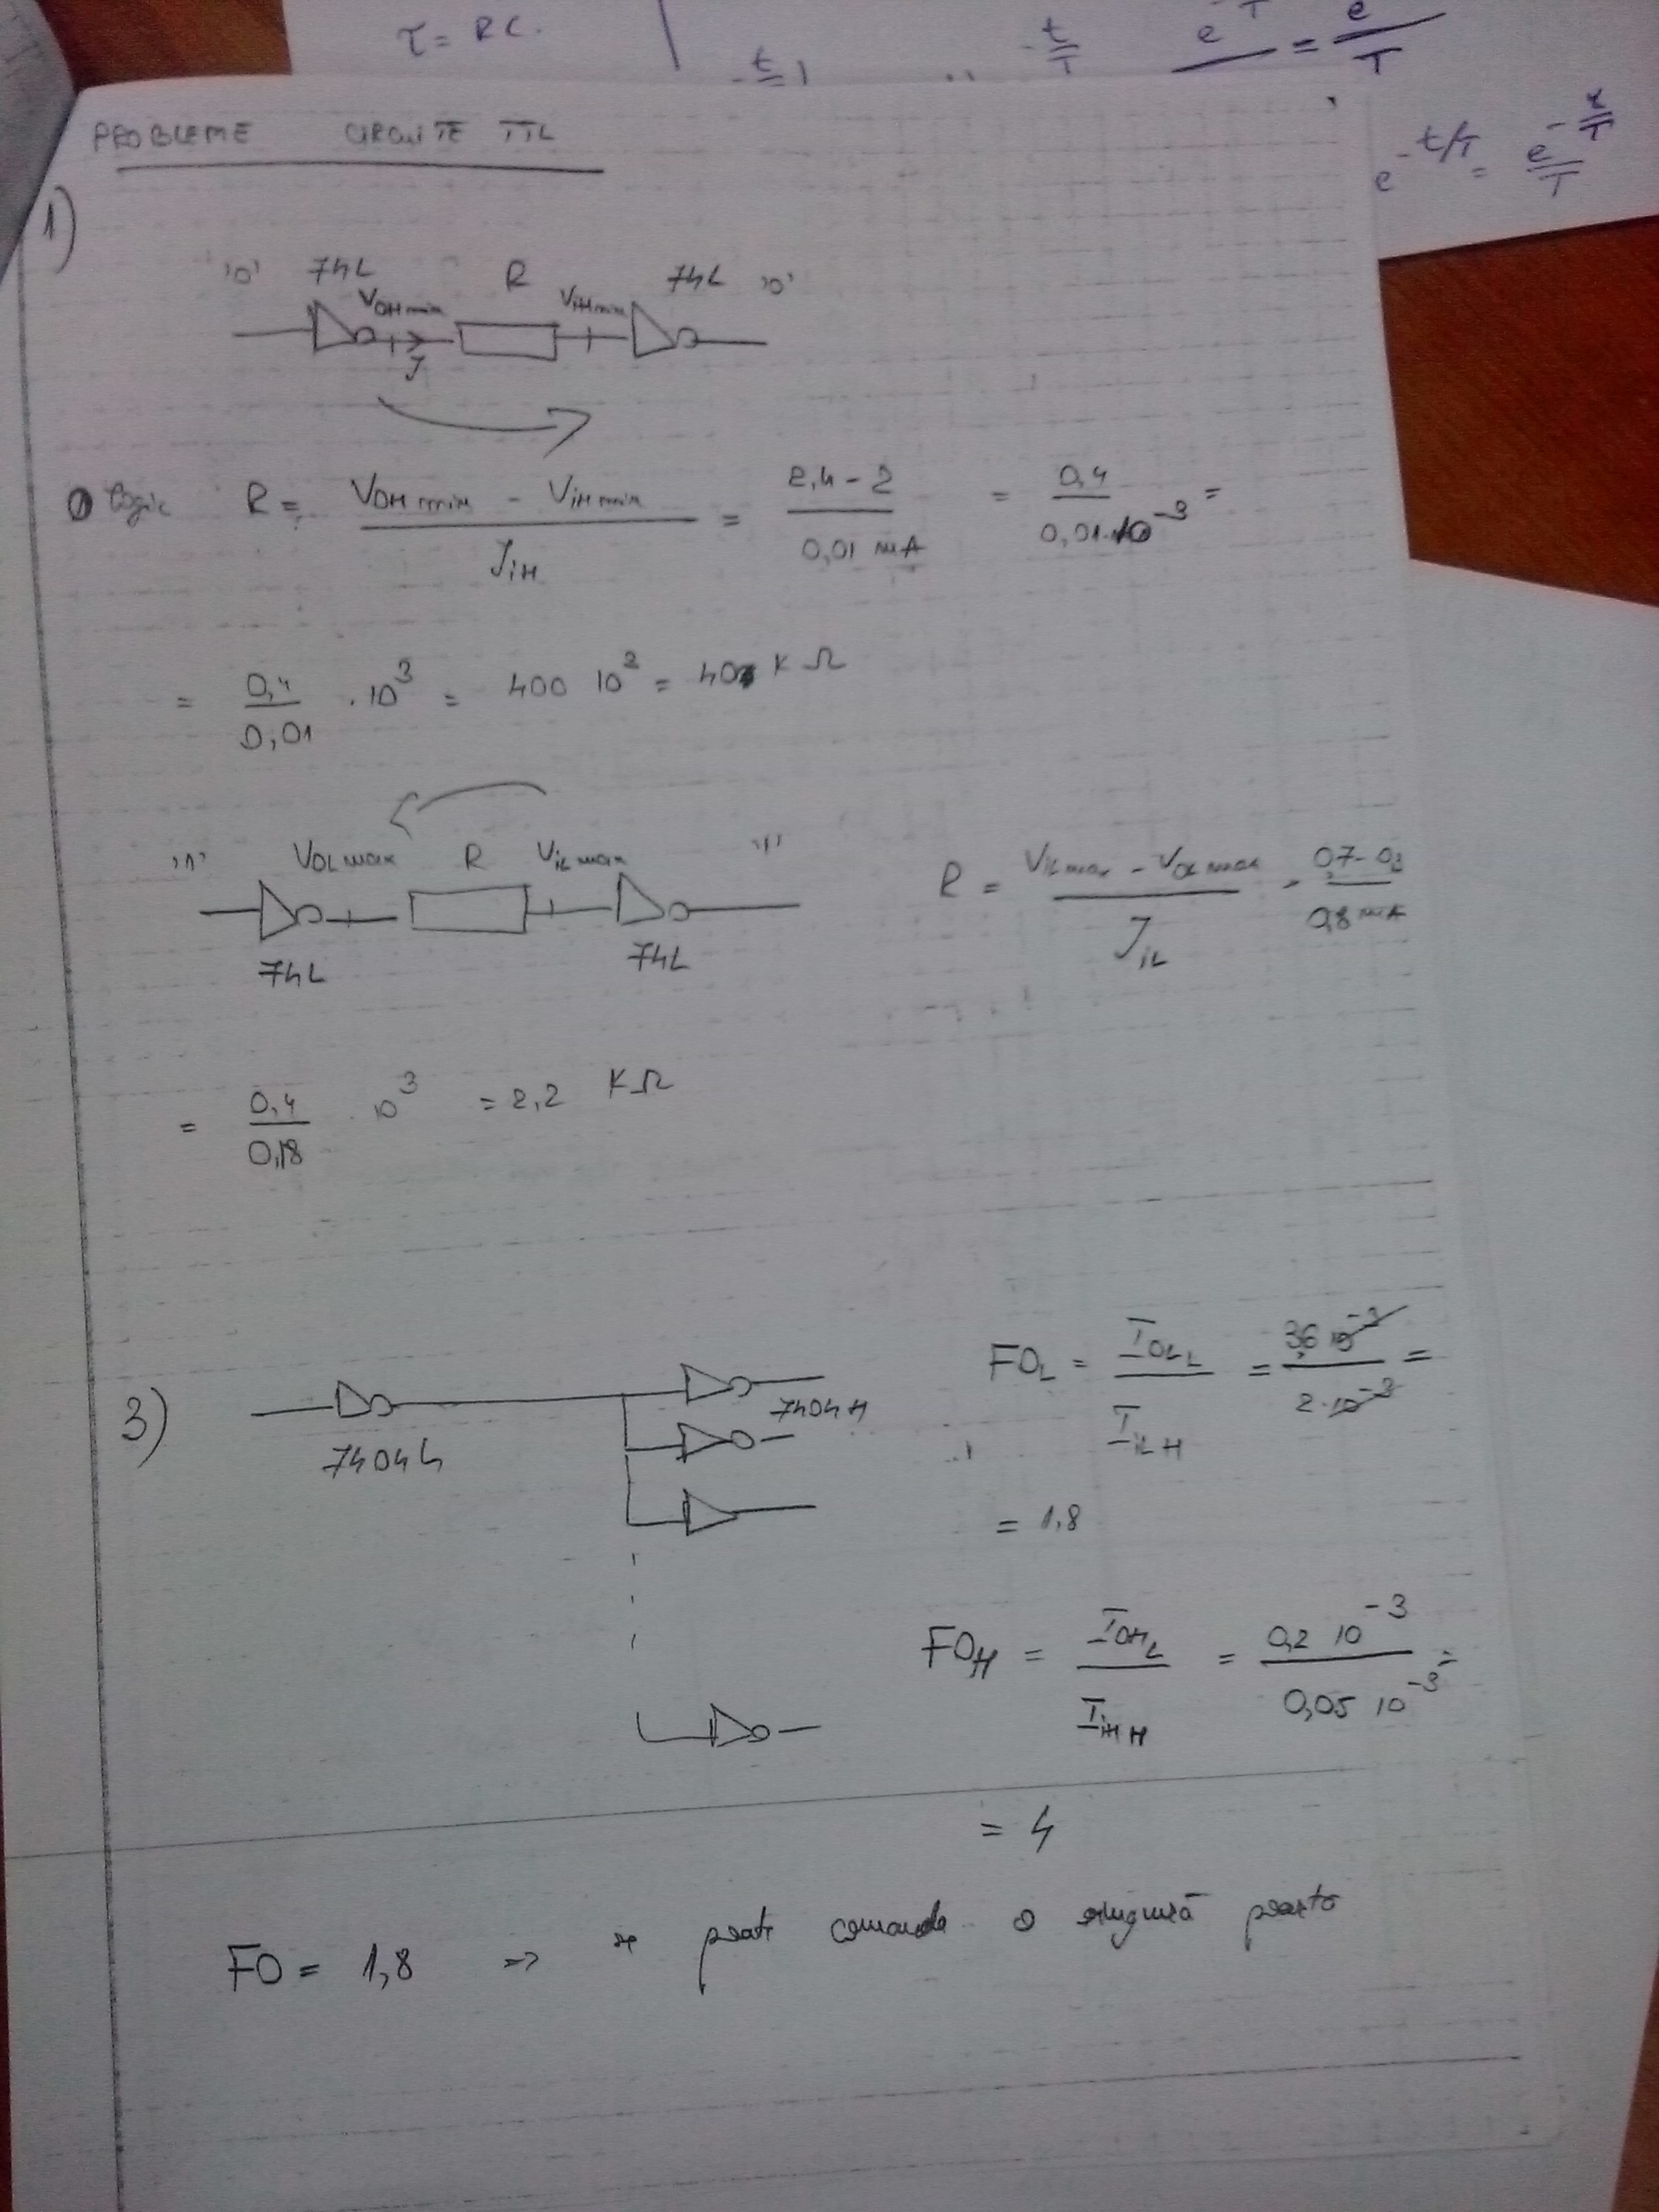 τ = RC.
- t/T
e / T
e^-t/T = e^-t/T / T
PROBLEME CIRCUITE TTL
1)
'0' 74L R 74L '0'
VOH min ViH min
J
0 logic R = (VOH min - ViH min) / JiH = (2,4 - 2) / 0,01 mA = 0,4 / 0,01·10^-3 =
= 0,4 / 0,01 · 10^3 = 400 10^2 = 40 KΩ
'1' VOL max R ViL max '1'
74L 74L
R = (ViL max - VOL max) / JiL = (0,7 - 0,3) / 0,8 mA
= 0,4 / 0,18 · 10^3 = 2,2 KΩ
3)
7404L 7404H
FOL = IOLL / IiLH = 3,6 10^-3 / 2·10^-3 =
= 1,8
FOH = IOHL / IiHH = 0,2 10^-3 / 0,05 10^-3 =
= 4
FO = 1,8 => se poate comanda o singură poartă